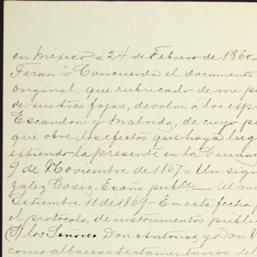 en México á 24 de Febrero de 1860=
Teran"= Concuerda el documento
original, que rubricado de mi p
de sus tres fojas, devolví á los esp
Escandon y Malvida, de cuyo p
que obre los efectos que haya lug
extiendo la presente en la Ciuda
9 de Noviembre de 1867= Un sign
zalez Cosiz, Esaño públº= Al on
Setiembre 11 de 1869= En esta fecha p
el protocolo de instrumentos públic
los Señores Don Antonio y Don
como albaceas testamentarios del